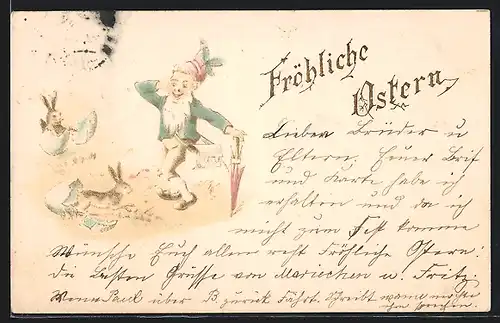 Fröhliche
Ostern
Lieber Brüder u
Eltern. Heuer Brif
und Karte habe ich
erhalten und da ich
nicht zum Fest komme
Wünsche Euch allen recht Fröhliche Ostern
die Besten Grüsse von Mariechen u. Fritz.
Wenn Paul über B. zurück Fährt. Schreibt wann